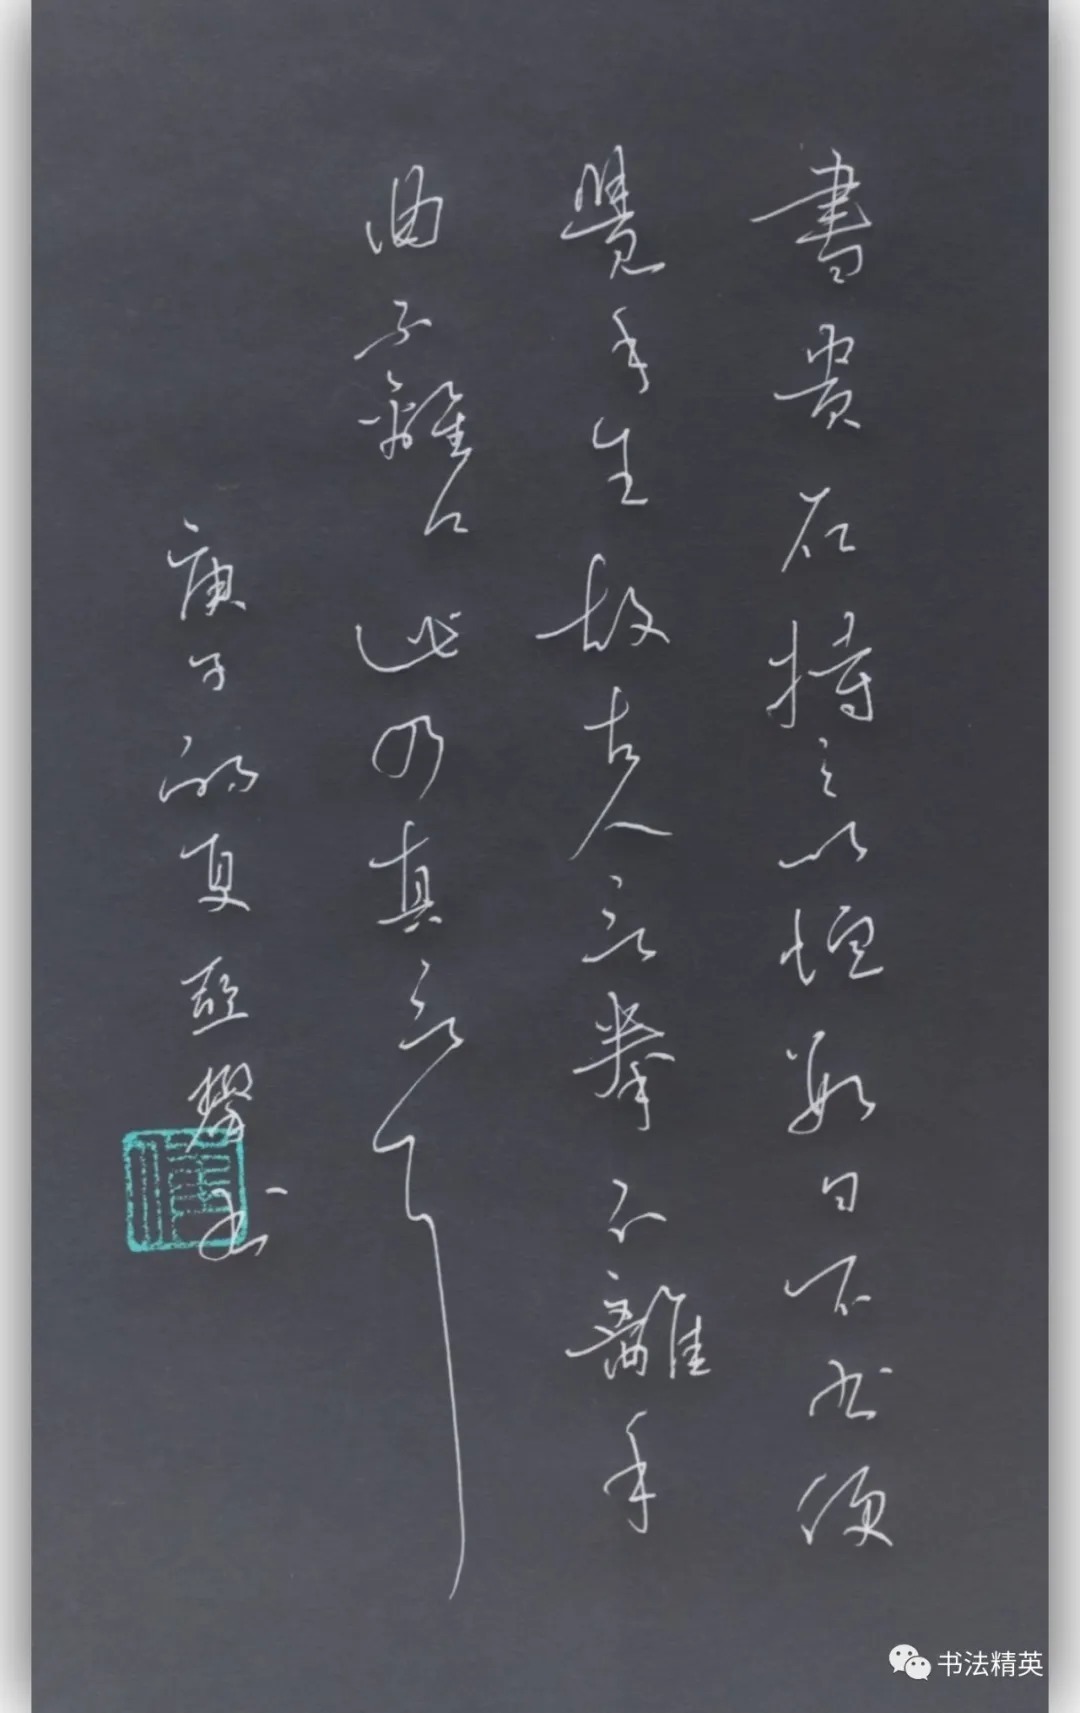 書貴在持之以恒數日不书便
覺手生故古人云拳不離手
曲不離口此乃真言
庚子初夏
书
书法精英